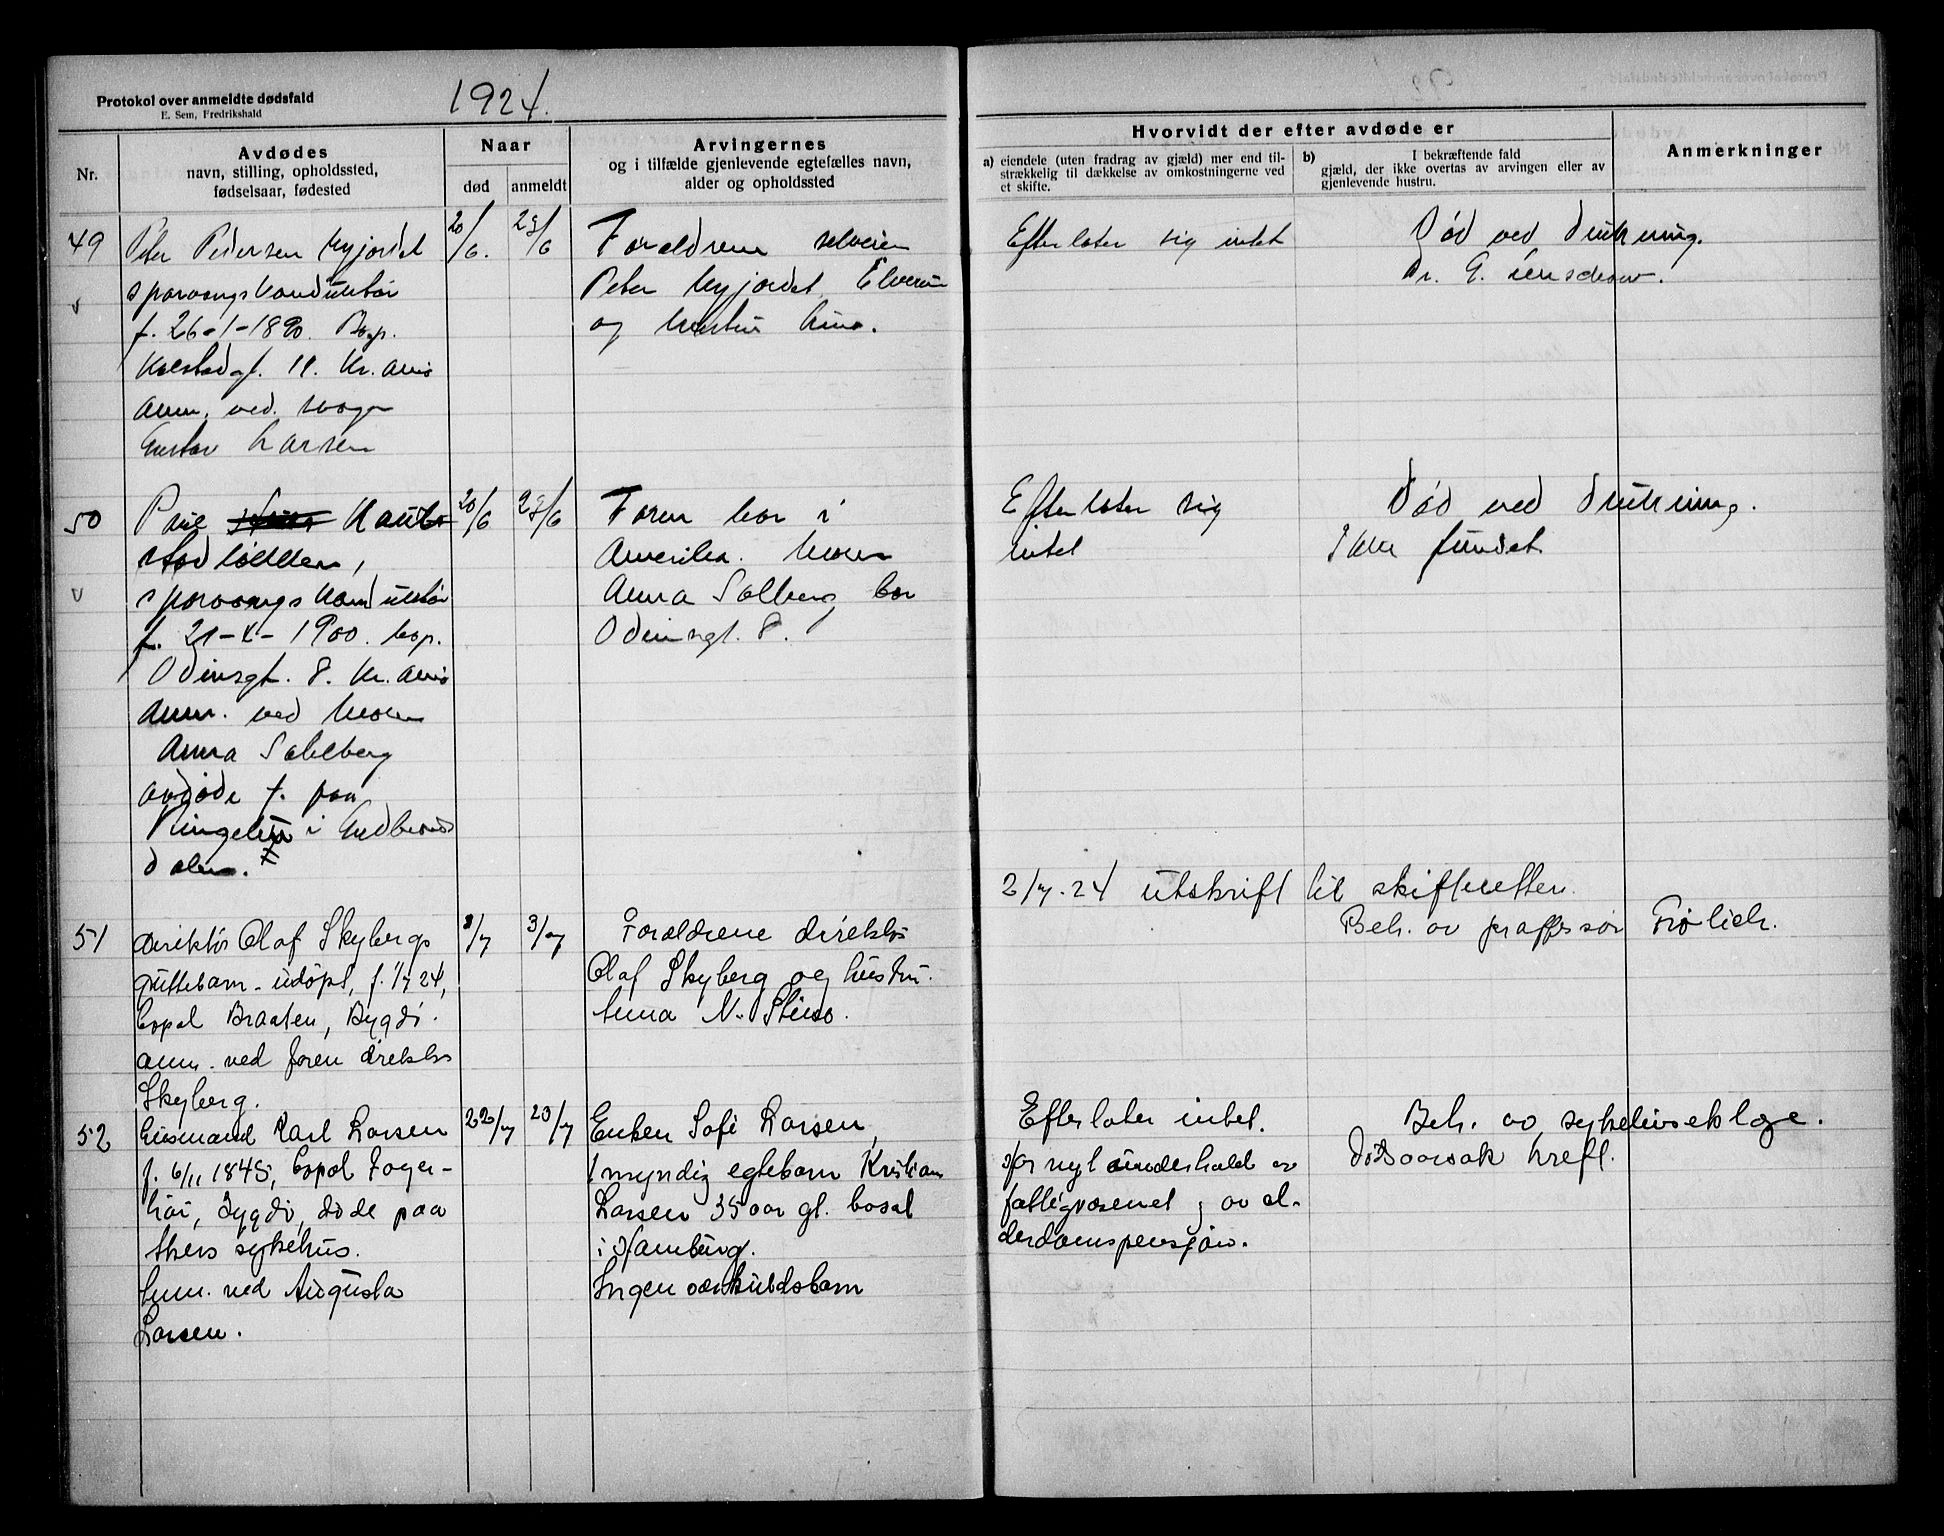 Protokol over anmeldte dødsfald
E. Sem, Fredrikshald
1924.
Nr.
Avdødes
navn, stilling, opholdssted,
fødselsaar, fødested
Naar
død
anmeldt
Arvingernes
og i tilfælde gjenlevende egtefælles navn,
alder og opholdssted
Hvorvidt der efter avdøde er
a) eiendele (uten fradrag av gjæld) mer end til-
strækkelig til dækkelse av omkostningerne ved
et skifte.
b) I bekræftende fald
gjæld, der ikke overtas av arvingen eller av
gjenlevende hustru.
Anmerkninger
49
Peter Pedersen
sporvongskonduktør
f. 26-1-1890. Bop.
11. Kr.ania
Anm. ved. svoger
Gustav Larsen
20/6.
23/6
Forældrene selveier
Peter Elverum
og hustru
Efterlater sig intet
Død ved drukning.
Dr. G.
50
Paul
sporvongskonduktør
f. 21-X-1900. bop.
Odinsgt. 8. Kr.ania
Anm. ved moren
Anna Sohlberg
avdøde f. paa
Ringebu i Gudbrands
dalen.
20/6
23/6
Faren bor i
Amerika. Moren
Anna Solberg bor
Odinsgt. 8.
Efterlater sig
intet
Død ved drukning.
Ikke fundet
2/7.24 utskrift til skifteretten.
51
direktør Olaf Skybergs
guttebarn - udøpt, f. 1/7 24,
bopal Braaten, Bygdø.
anm. ved faren direktør
Skyberg.
3/7
Forældrene direktør
Olaf Skyberg og hustru
Anna N.
Beh. av professor Frølich.
52
Husmand Karl Larsen
f. 6/11 1845, bopal Fager-
heim, Bygdø, døde paa
Akers sykehus.
Anm. ved Augusta
Larsen.
22/7
23/7
Enken Sofi Larsen,
1 myndig egtebarn Kristian
Larsen 35 aar gl. bosat
i Hamburg.
Ingen særkuldsbarn
Efterlater intet.
Har nyt underhold av
fattigvæsenet og al-
derdomspensjon.
Beh. av
dødsaarsak kreft.